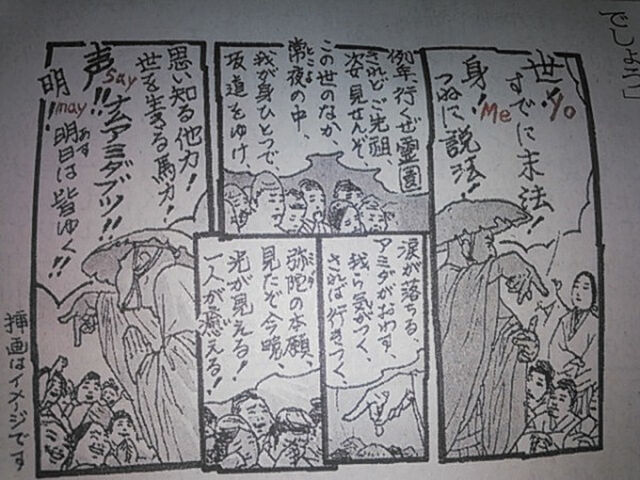 でしょう」
世!
Yo
すでに末法!
身!
Me
つねに説法!
例年、行くぜ霊園
されどご先祖、
姿見せんぞ
この世のなか、
常夜の中、
とこよ
我が身ひとつで
坂道をゆけ、
涙が落ちる、
アミダがおわす、
我ら気がつく、
されば行きつく
弥陀の本願、
ミダ
見たぞ今晩、
光が見える!
一人が癒える!
思い知る他力!
世を生きる馬力!
声!!
Say
ナムアミダブツ!!
明!
may
明日は皆ゆく!!
あす
挿画はイメージです